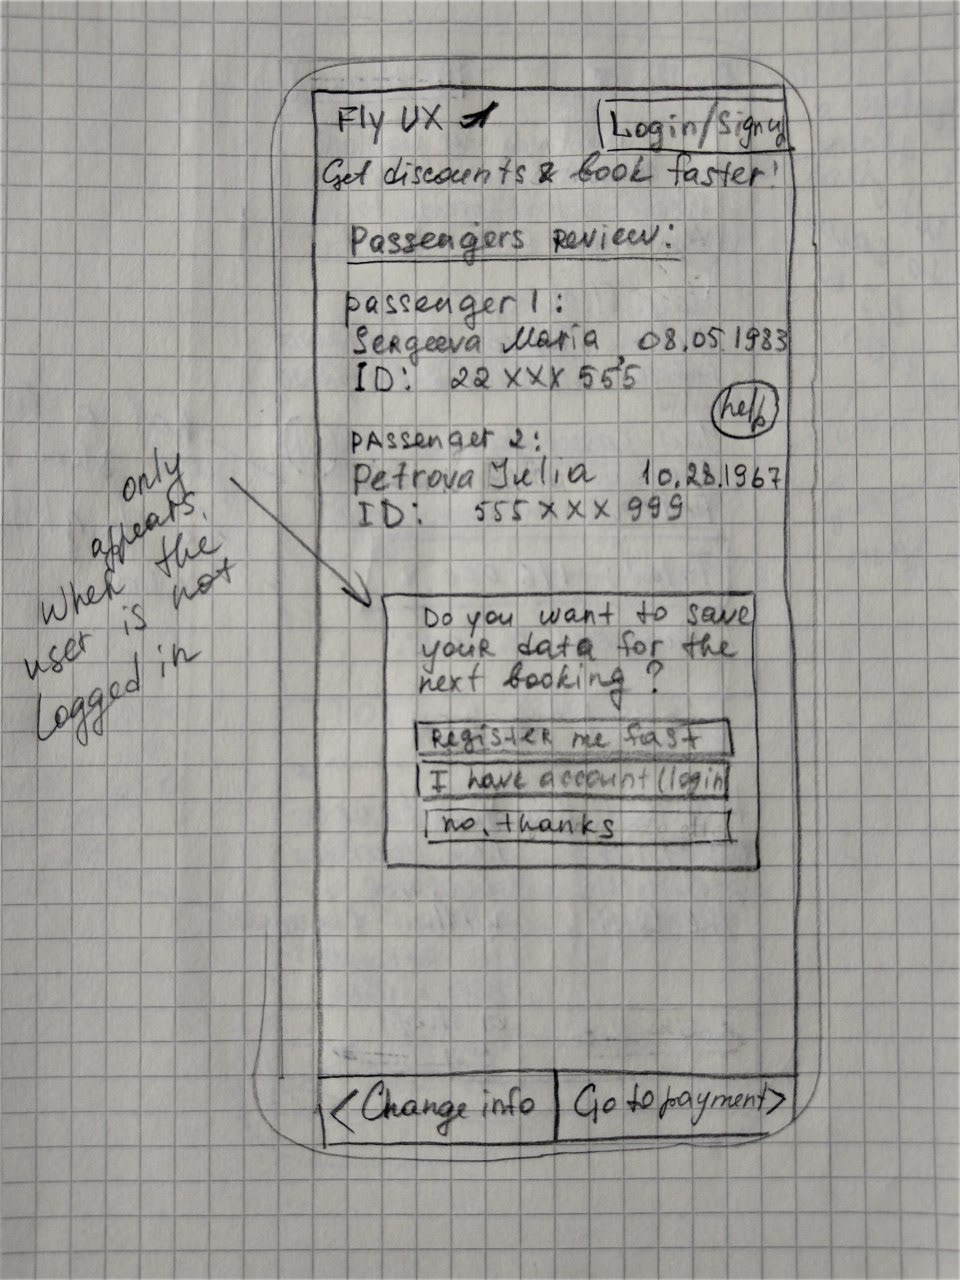 Fly UX
Login/Signup
Get discounts & book faster!
Passengers review:
passenger 1:
Sergeeva Maria 08.05.1983
ID: 22 XXX 555
help
passenger 2:
Petrova Julia 10.28.1967
ID: 555 XXX 999
only
appears
when the
user is not
Logged in
Do you want to save
your data for the
next booking?
Register me fast
I have account (login
no, thanks
< Change info
Go to payment >